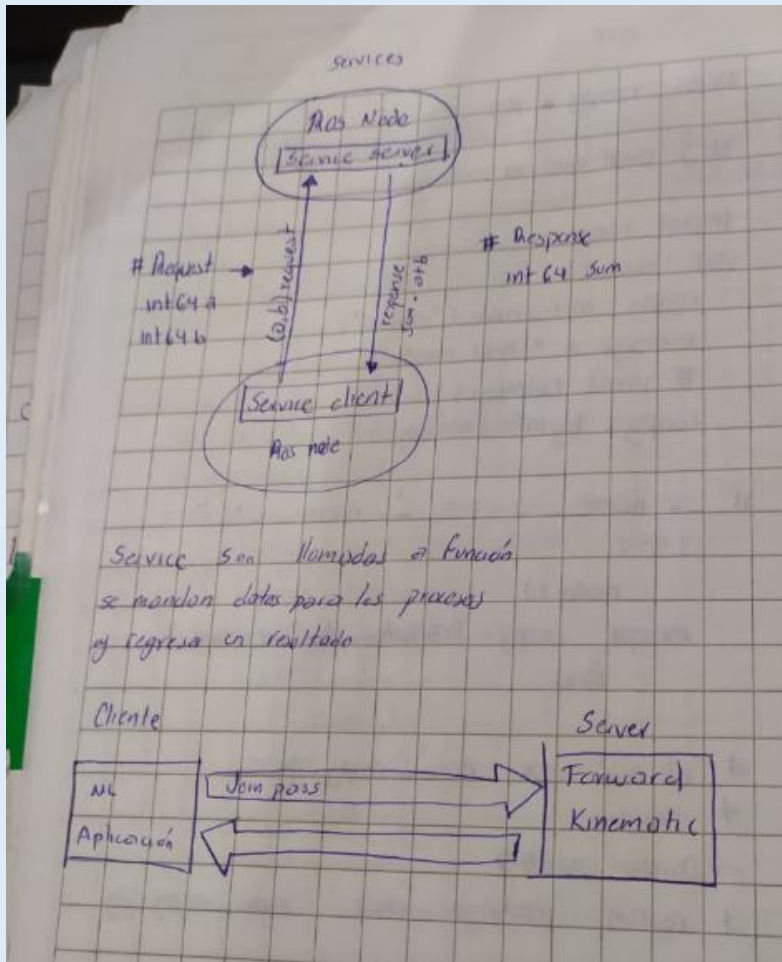 Services
Ros Node
Service server
# Request
int64 a
int64 b
(a,b) request
response
sum = a+b
# Response
int 64 sum
Service client
Ros node
Service son llamadas a función
se mandan datos para los procesos
y regresa un resultado
Cliente
Server
Aplicación
Forward
Kinematic